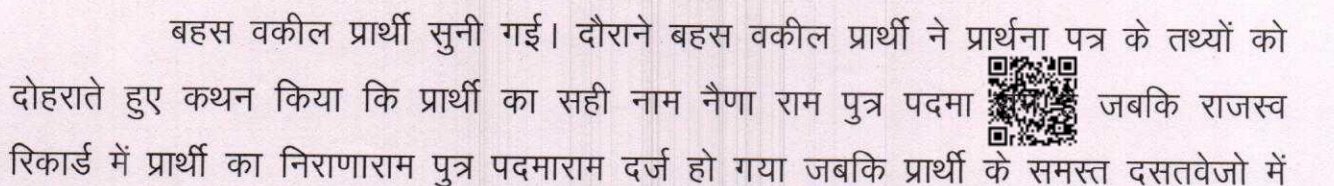 बहस वकील प्रार्थी सुनी गई। दौराने बहस वकील प्रार्थी ने प्रार्थना पत्र के तथ्यों को
दोहराते हुए कथन किया कि प्रार्थी का सही नाम नैणा राम पुत्र पदमा जबकि राजस्व
रिकार्ड में प्रार्थी का निराणाराम पुत्र पदमाराम दर्ज हो गया जबकि प्रार्थी के समस्त दसतवेजो में